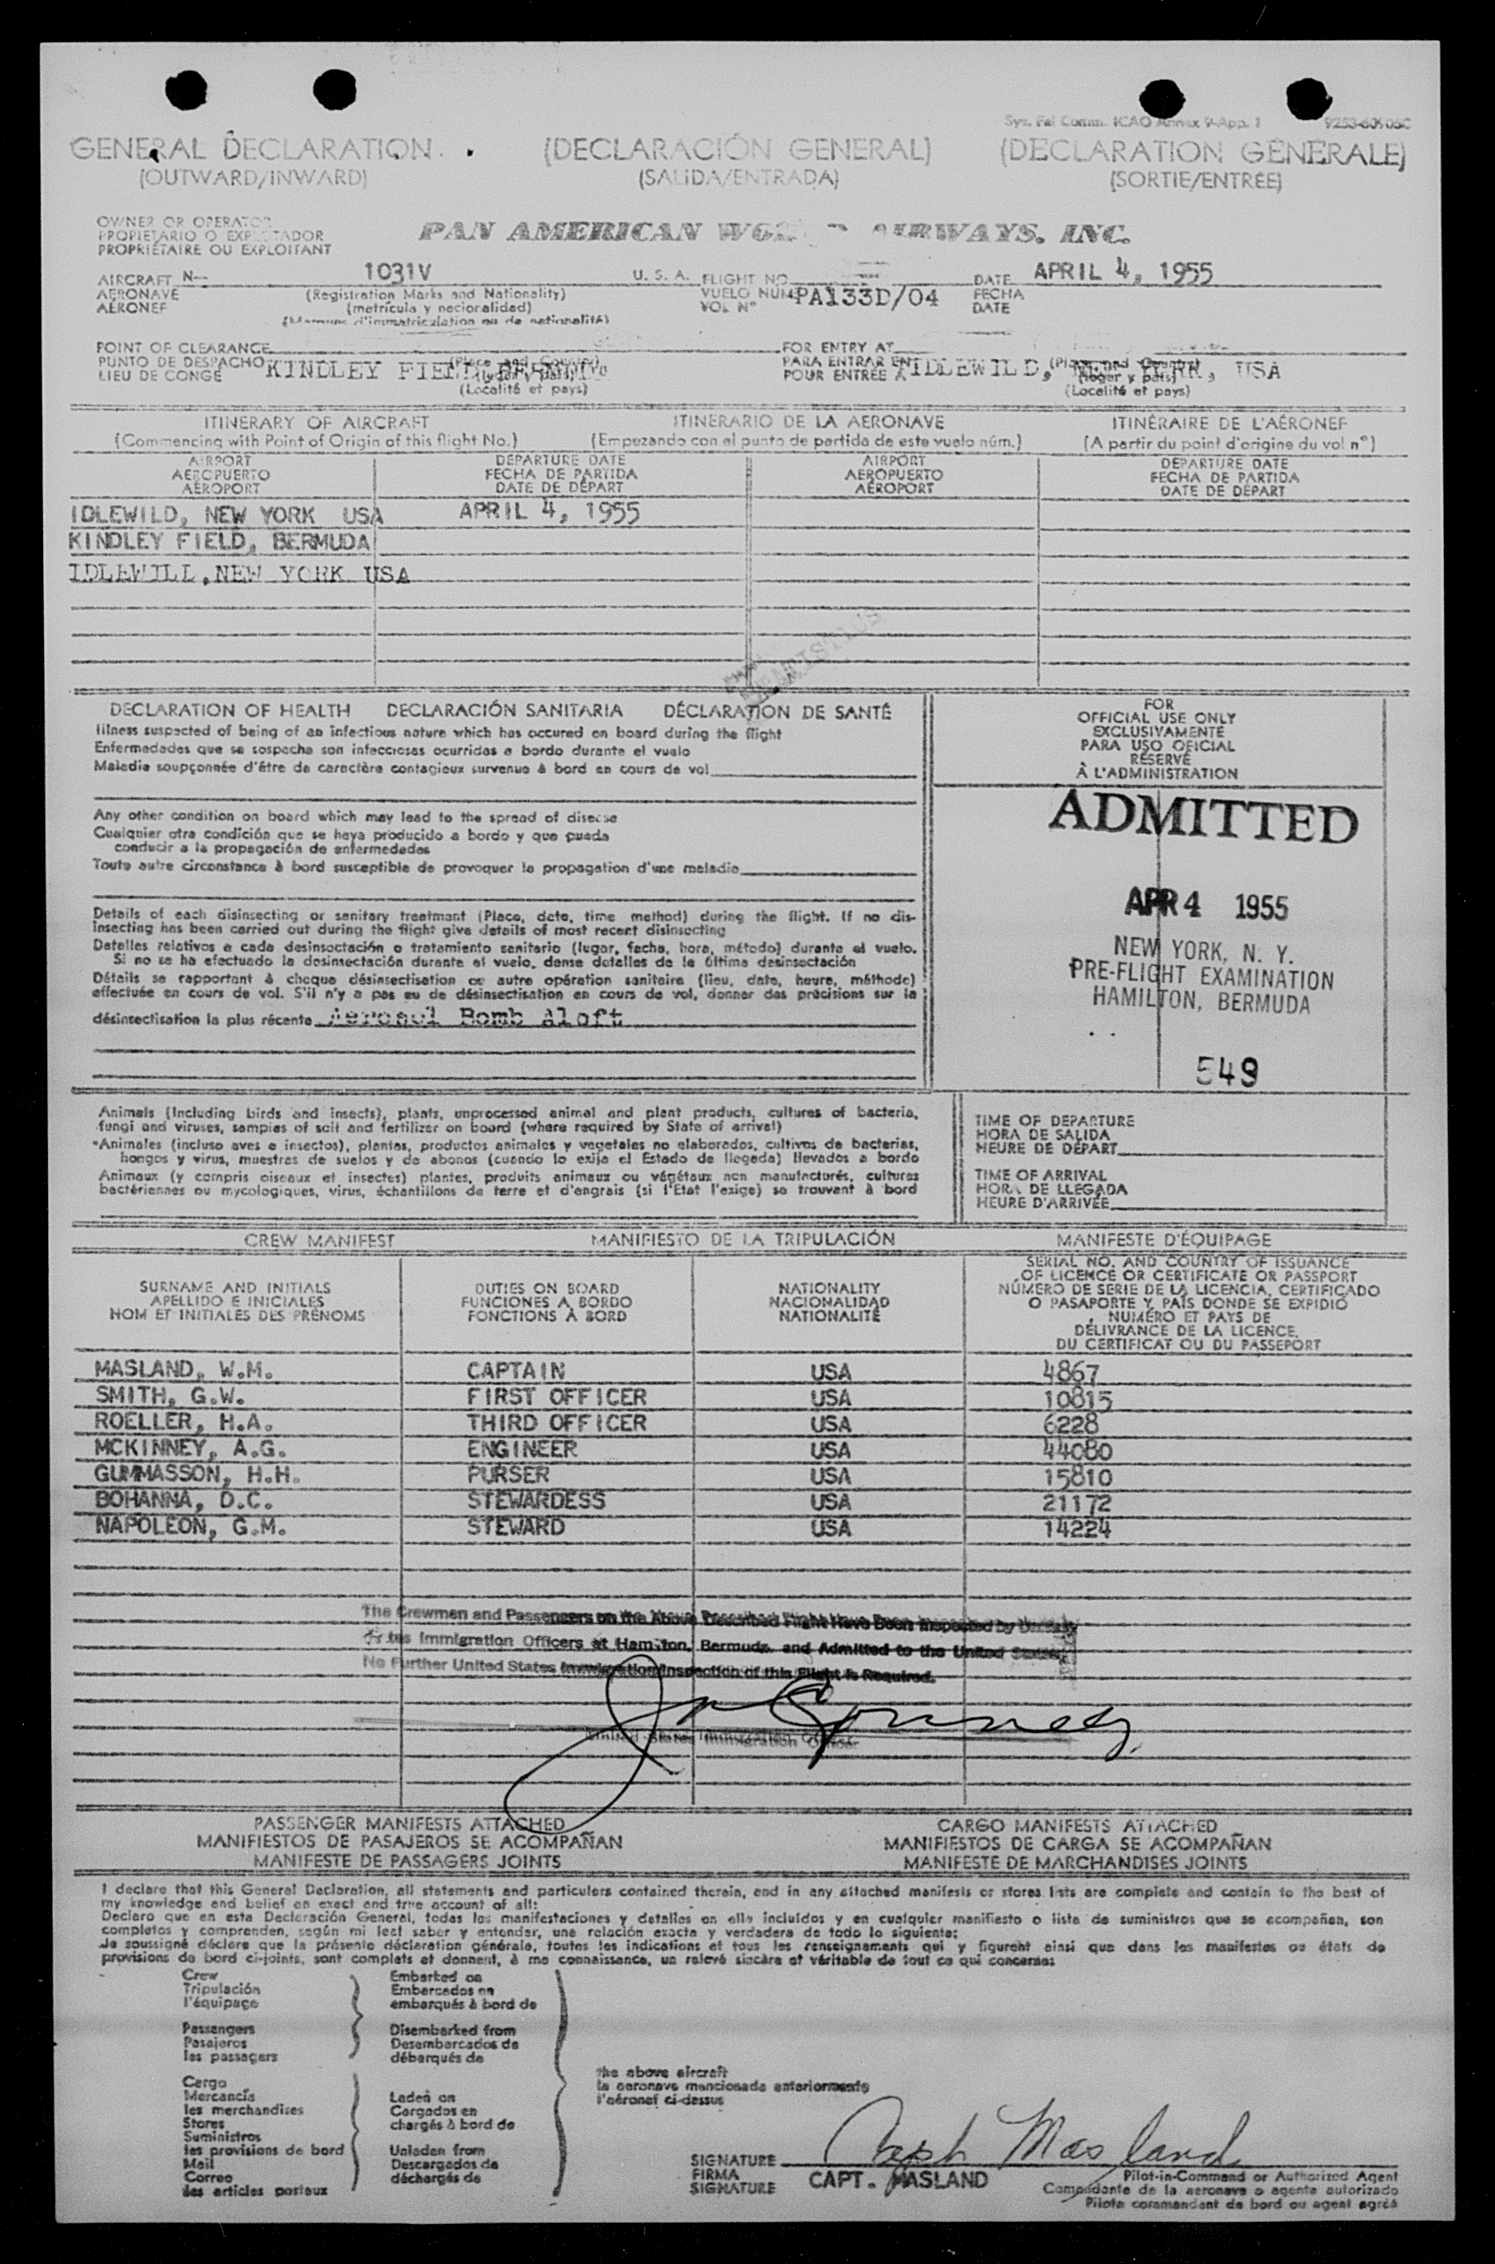 Sys. Fal Comm. ICAO Annex 9-App. 1
GENERAL DECLARATION (DECLARACIÓN GENERAL) (DECLARATION GÉNÉRALE)
(OUTWARD/INWARD) (SALIDA/ENTRADA) (SORTIE/ENTRÉE)
OWNER OR OPERATOR
PROPIETARIO O EXPLOTADOR
PROPRIÉTAIRE OU EXPLOITANT
PAN AMERICAN AIRWAYS, INC.
AIRCRAFT N- 1031V U. S. A. FLIGHT NO. DATE APRIL 4, 1955
AERONAVE (Registration Marks and Nationality) VUELO NUM PA133D/04 FECHA
AÉRONEF (matrícula y nacionalidad) VOL N° DATE
(Marques d'immatriculation ou de nationalité)
POINT OF CLEARANCE FOR ENTRY AT
PUNTO DE DESPACHO KINDLEY FIELD, (Place and Country) PARA ENTRAR EN IDLEWILD, NEW YORK, USA
LIEU DE CONGÉ POUR ENTRÉE À
(Localité et pays) (Localité et pays)
ITINERARY OF AIRCRAFT ITINERARIO DE LA AERONAVE ITINÉRAIRE DE L'AÉRONEF
(Commencing with Point of Origin of this flight No.) (Empezando con el punto de partida de este vuelo núm.) (A partir du point d'origine du vol n°)
AIRPORT DEPARTURE DATE AIRPORT DEPARTURE DATE
AEROPUERTO FECHA DE PARTIDA AEROPUERTO FECHA DE PARTIDA
AÉROPORT DATE DE DÉPART AÉROPORT DATE DE DÉPART
IDLEWILD, NEW YORK USA APRIL 4, 1955
KINDLEY FIELD, BERMUDA
IDLEWILL, NEW YORK USA
DECLARATION OF HEALTH DECLARACIÓN SANITARIA DÉCLARATION DE SANTÉ
Illness suspected of being of an infectious nature which has occured on board during the flight
Enfermedades que se sospecha son infecciosas ocurridas a bordo durante el vuelo
Maladie soupçonnée d'être de caractère contagieux survenue à bord en cours de vol
Any other condition on board which may lead to the spread of disease
Cualquier otra condición que se haya producido a bordo y que pueda
conducir a la propagación de enfermedades
Toute autre circonstance à bord susceptible de provoquer la propagation d'une maladie
Details of each disinsecting or sanitary treatment (Place, date, time method) during the flight. If no dis-
insecting has been carried out during the flight give details of most recent disinsecting
Detalles relativos a cada desinsectación o tratamiento sanitario (lugar, fecha, hora, método) durante el vuelo.
Si no se ha efectuado la desinsectación durante el vuelo, dense detalles de la última desinsectación
Détails se rapportant à chaque désinsectisation ou autre opération sanitaire (lieu, date, heure, méthode)
effectuée en cours de vol. S'il n'y a pas eu de désinsectisation en cours de vol, donner des précisions sur la
désinsectisation la plus récente Aerosol Bomb Aloft
FOR
OFFICIAL USE ONLY
EXCLUSIVAMENTE
PARA USO OFICIAL
RÉSERVÉ
À L'ADMINISTRATION
ADMITTED
APR 4 1955
NEW YORK, N. Y.
PRE-FLIGHT EXAMINATION
HAMILTON, BERMUDA
549
Animals (Including birds and insects), plants, unprocessed animal and plant products, cultures of bacteria,
fungi and viruses, samples of soil and fertilizer on board (where required by State of arrival)
Animales (incluso aves e insectos), plantas, productos animales y vegetales no elaborados, cultivos de bacterias,
hongos y virus, muestras de suelos y de abonos (cuando lo exija el Estado de llegada) llevados a bordo
Animaux (y compris oiseaux et insectes) plantes, produits animaux ou végétaux non manufacturés, cultures
bactériennes ou mycologiques, virus, échantillons de terre et d'engrais (si l'État l'exige) se trouvant à bord
TIME OF DEPARTURE
HORA DE SALIDA
HEURE DE DÉPART
TIME OF ARRIVAL
HORA DE LLEGADA
HEURE D'ARRIVÉE
CREW MANIFEST MANIFIESTO DE LA TRIPULACIÓN MANIFESTE D'ÉQUIPAGE
SURNAME AND INITIALS
APELLIDO E INICIALES
NOM ET INITIALES DES PRÉNOMS
DUTIES ON BOARD
FUNCIONES A BORDO
FONCTIONS À BORD
NATIONALITY
NACIONALIDAD
NATIONALITÉ
SERIAL NO. AND COUNTRY OF ISSUANCE
OF LICENCE OR CERTIFICATE OR PASSPORT
NÚMERO DE SERIE DE LA LICENCIA, CERTIFICADO
O PASAPORTE Y PAÍS DONDE SE EXPIDIÓ
NUMÉRO ET PAYS DE
DÉLIVRANCE DE LA LICENCE,
DU CERTIFICAT OU DU PASSEPORT
MASLAND, W.M. CAPTAIN USA 4867
SMITH, G.W. FIRST OFFICER USA 10815
ROELLER, H.A. THIRD OFFICER USA 6228
MCKINNEY, A.G. ENGINEER USA 44080
GUMMASSON, H.H. PURSER USA 15810
BOHANNA, D.C. STEWARDESS USA 21172
NAPOLEON, G.M. STEWARD USA 14224
The Crewmen and Passengers on the Above Described Flight Have Been Inspected by
Immigration Officers at Hamilton, Bermuda, and Admitted to the United States.
No Further United States Immigration Inspection of this Flight Is Required.
United States Immigration Officer
PASSENGER MANIFESTS ATTACHED CARGO MANIFESTS ATTACHED
MANIFIESTOS DE PASAJEROS SE ACOMPAÑAN MANIFIESTOS DE CARGA SE ACOMPAÑAN
MANIFESTE DE PASSAGERS JOINTS MANIFESTE DE MARCHANDISES JOINTS
I declare that this General Declaration, all statements and particulars contained therein, and in any attached manifests or stores lists are complete and contain to the best of
my knowledge and belief an exact and true account of all:
Declaro que en esta Declaración General, todas las manifestaciones y detalles en ella incluidos y en cualquier manifiesto o lista de suministros que se acompañan, son
completos y comprenden, según mi leal saber y entender, una relación exacta y verdadera de todo lo siguiente:
Je soussigné déclare que la présente déclaration générale, toutes les indications et tous les renseignements qui y figurent ainsi que dans les manifestes ou états de
provisions de bord ci-joints, sont complets et donnent, à ma connaissance, un relevé sincère et véritable de tout ce qui concerne:
Crew Embarked on
Tripulación Embarcados en
l'équipage embarqués à bord de
Passengers Disembarked from
Pasajeros Desembarcados de
les passagers débarqués de
the above aircraft
la aeronave mencionada anteriormente
l'aéronef ci-dessus
Cargo
Mercancía Laden on
les merchandises Cargados en
Stores chargés à bord de
Suministros
les provisions de bord Unladen from
Mail Descargados de
Correo déchargés de
des articles postaux
SIGNATURE Masland
FIRMA CAPT. MASLAND Pilot-in-Command or Authorized Agent
SIGNATURE Comandante de la aeronave o agente autorizado
Pilote commandant de bord ou agent agréé